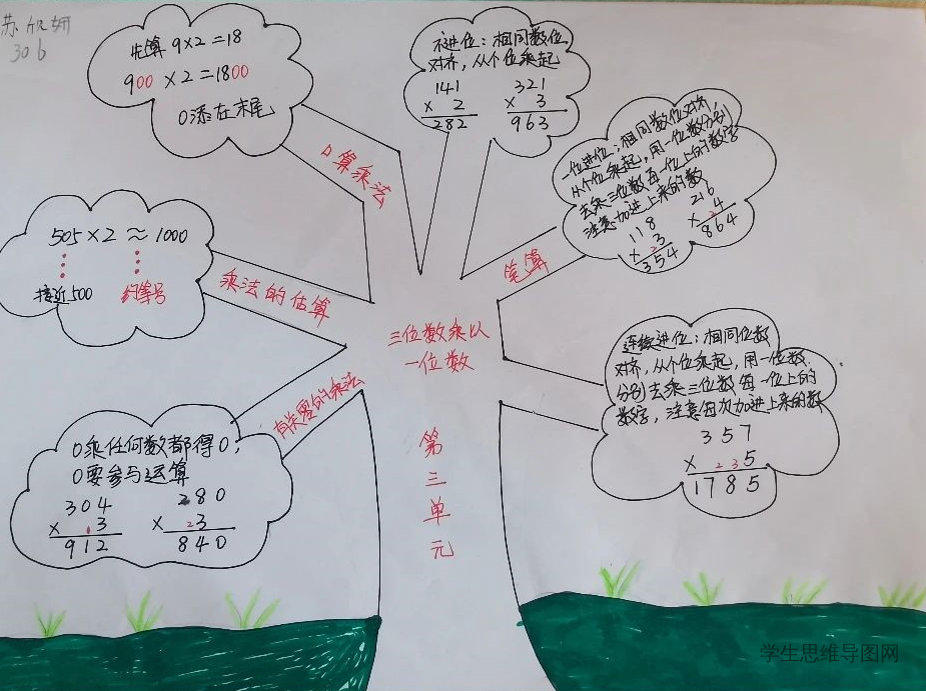 苏欣妍
306
先算 9×2=18
900×2=1800
0添在末尾
口算乘法
不进位：相同数位
对齐，从个位乘起
141
× 2
282
321
× 3
963
一位进位：相同数位对齐，
从个位乘起，用一位数分别
去乘三位数每一位上的数字
注意加进上来的数
118
×23
354
216
×24
864
笔算
505×2≈1000
接近500
约等号
乘法的估算
三位数乘以
一位数
第
三
单
元
连续进位：相同位数
对齐，从个位乘起，用一位数
分别去乘三位数每一位上的
数字，注意每次加进上来的数
357
× 235
1785
有关零的乘法
0乘任何数都得0，
0要参与运算
304
× 13
912
280
× 23
840
学生思维导图网